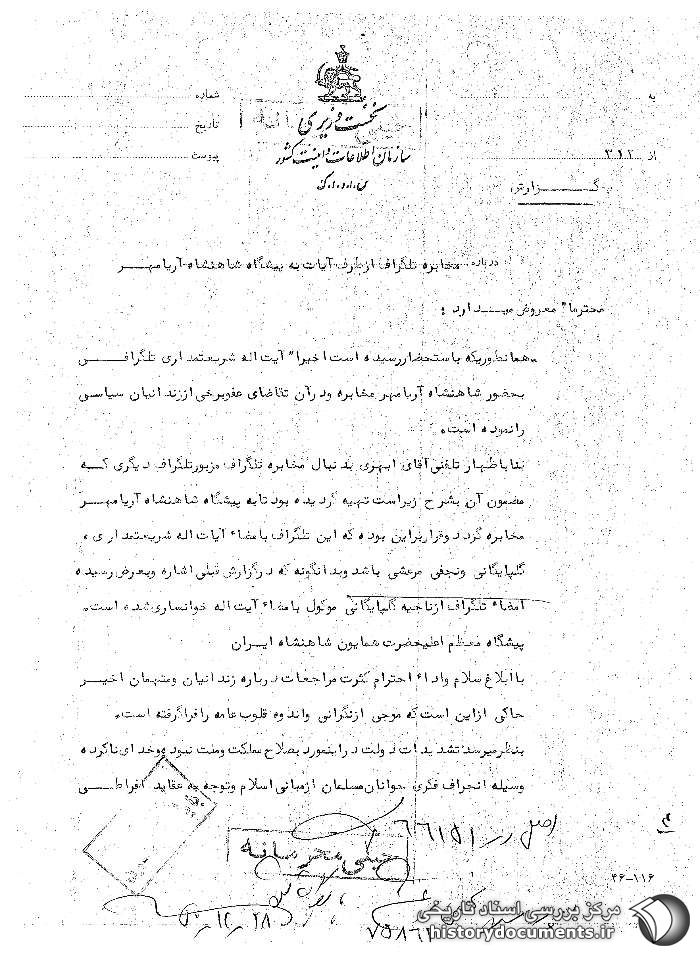 به
شماره
نخست وزیری
تاریخ
سازمان اطلاعات و امنیت کشور
از ۳۱۲
پیوست
س.ا.و.ا.ک
گـــزارش
درباره مخابره تلگراف ازطرف آیات به پیشگاه شاهنشاه آریامهـــر
محترما" معروض میـــدارد :
همانطوریکه باستحضاررسیده است اخیرا" آیت اله شریعتمداری تلگرافـــی
بحضور شاهنشاه آریامهر مخابره ودرآن تقاضای عفوبرخی اززندانیان سیاسی
رانموده است.
بنا باظهار تلفنی آقای ابهری بدنبال مخابره تلگراف مزبورتلگراف دیگری کــه
مضمون آن بشرح زیراست تهیه گردیده بود تابه پیشگاه شاهنشاه آریامهـــر
مخابره گردد وقراربراین بوده که این تلگراف بامضاء آیات اله شریعتمداری ،
گلپایگانی ونجفی مرعشی باشد وبدانگونه که درگزارش قبلی اشاره وبعرض رسیده
امضاء تلگراف ازناحیه گلپایگانی موکول بامضاء آیت اله خوانساری شده است.
پیشگاه معظم اعلیحضرت همایون شاهنشاه ایران
باابلاغ سلام واداء احترام کثرت مراجعات درباره زندانیان ومتهمان اخیــر
حاکی ازاین است که موجی ازنگرانی واندوه قلوب عامه رافراگرفته است.
بنظرمیرسد تشدیدات دولت دراینمورد بصلاح مملکت وملت نبوده وخدای ناکرده
وسیله انحراف فکری جوانان مسلمان ازمبانی اسلام وتوجه به عقاید افراطـــی
اصل در ۶۶۱۵۱
خیلی محرمانه
۳۶-۱۱۶
۲۸ ر ۱۲ ر
۷۵۸۶۲
مرکز بررسی اسناد تاریخی
historydocuments.ir